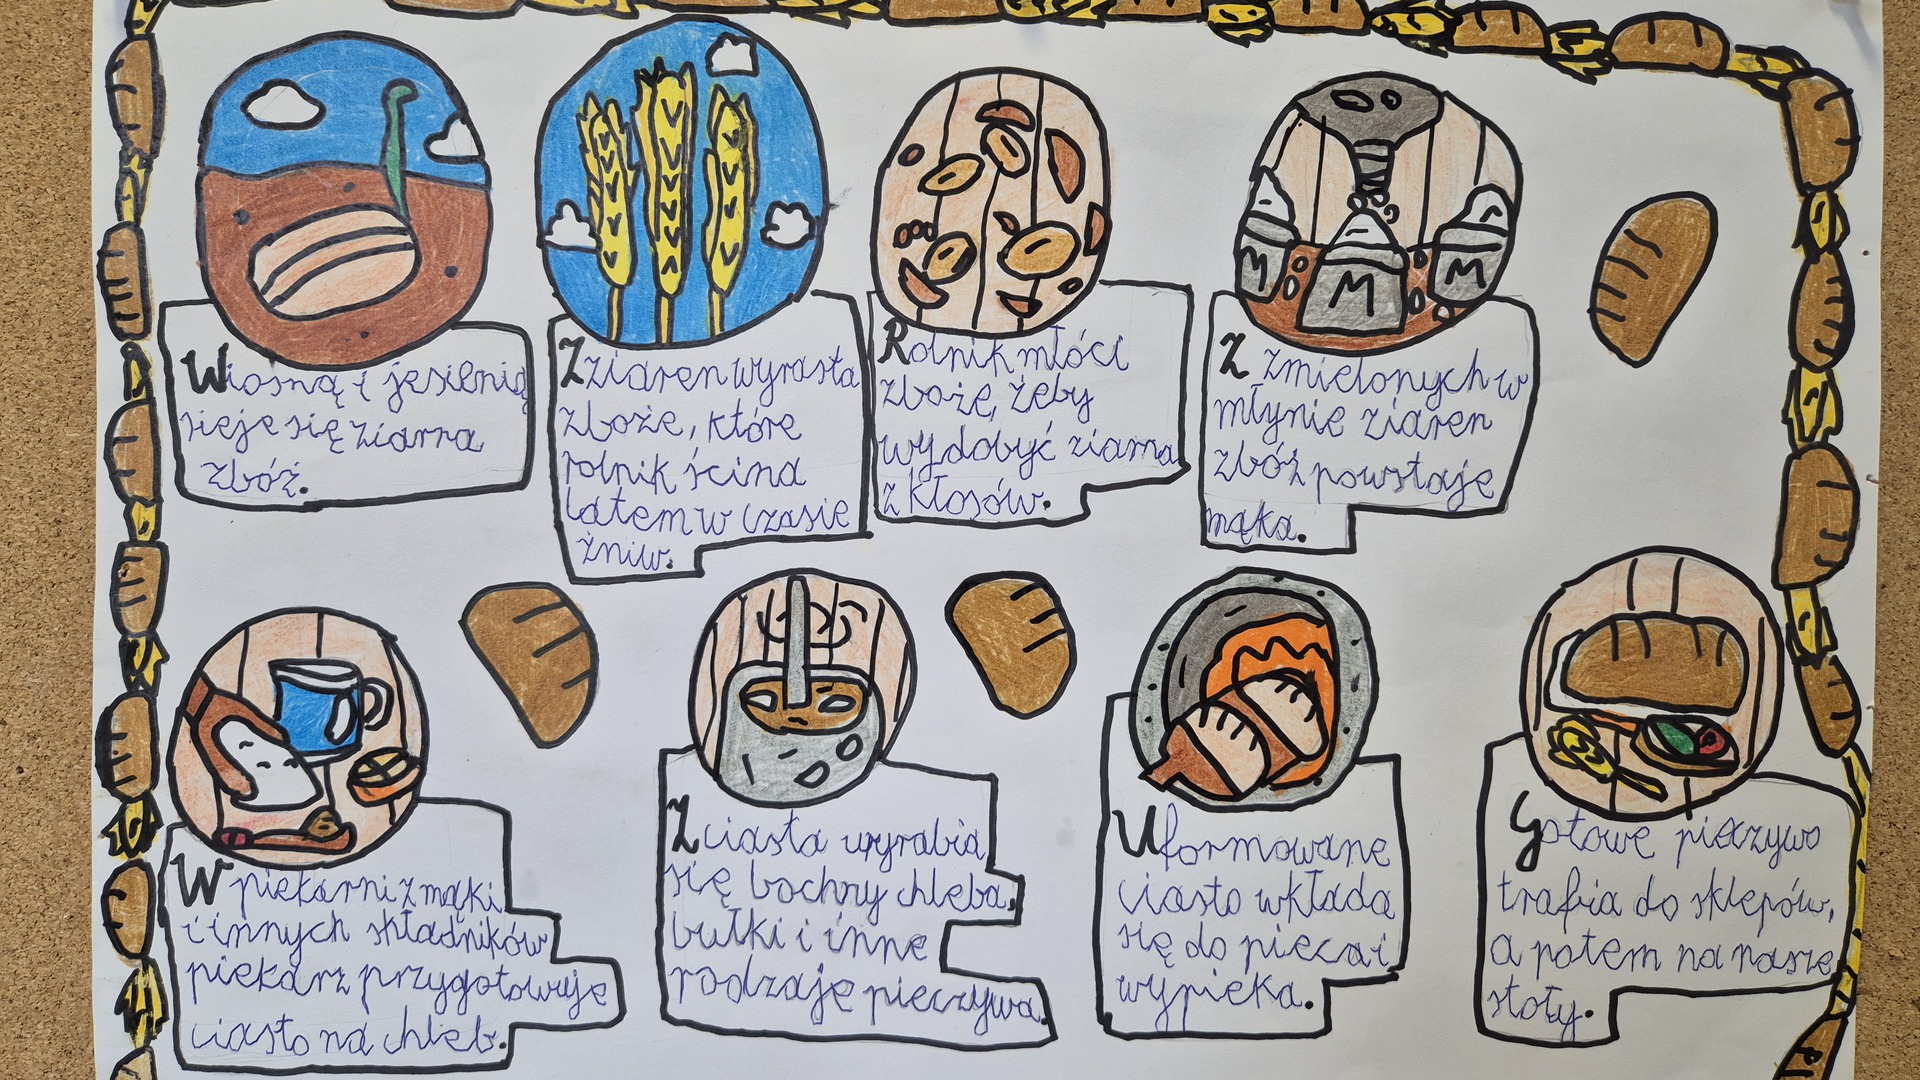 Wiosną i jesienią
sieje się ziarna
zbóż.
Z ziaren wyrasta
zboże, które
rolnik ścina
latem w czasie
żniw.
Rolnik młóci
zboże, żeby
wydobyć ziarna
z kłosów.
M
M
M
Z zmielonych w
młynie ziaren
zbóż powstaje
mąka.
W piekarni z mąki
i innych składników
piekarz przygotowuje
ciasto na chleb.
Z ciasta wyrabia
się bochny chleba,
bułki i inne
rodzaje pieczywa.
Uformowane
ciasto wkłada
się do pieca i
wypieka.
Gotowe pieczywo
trafia do sklepów,
a potem na nasze
stoły.